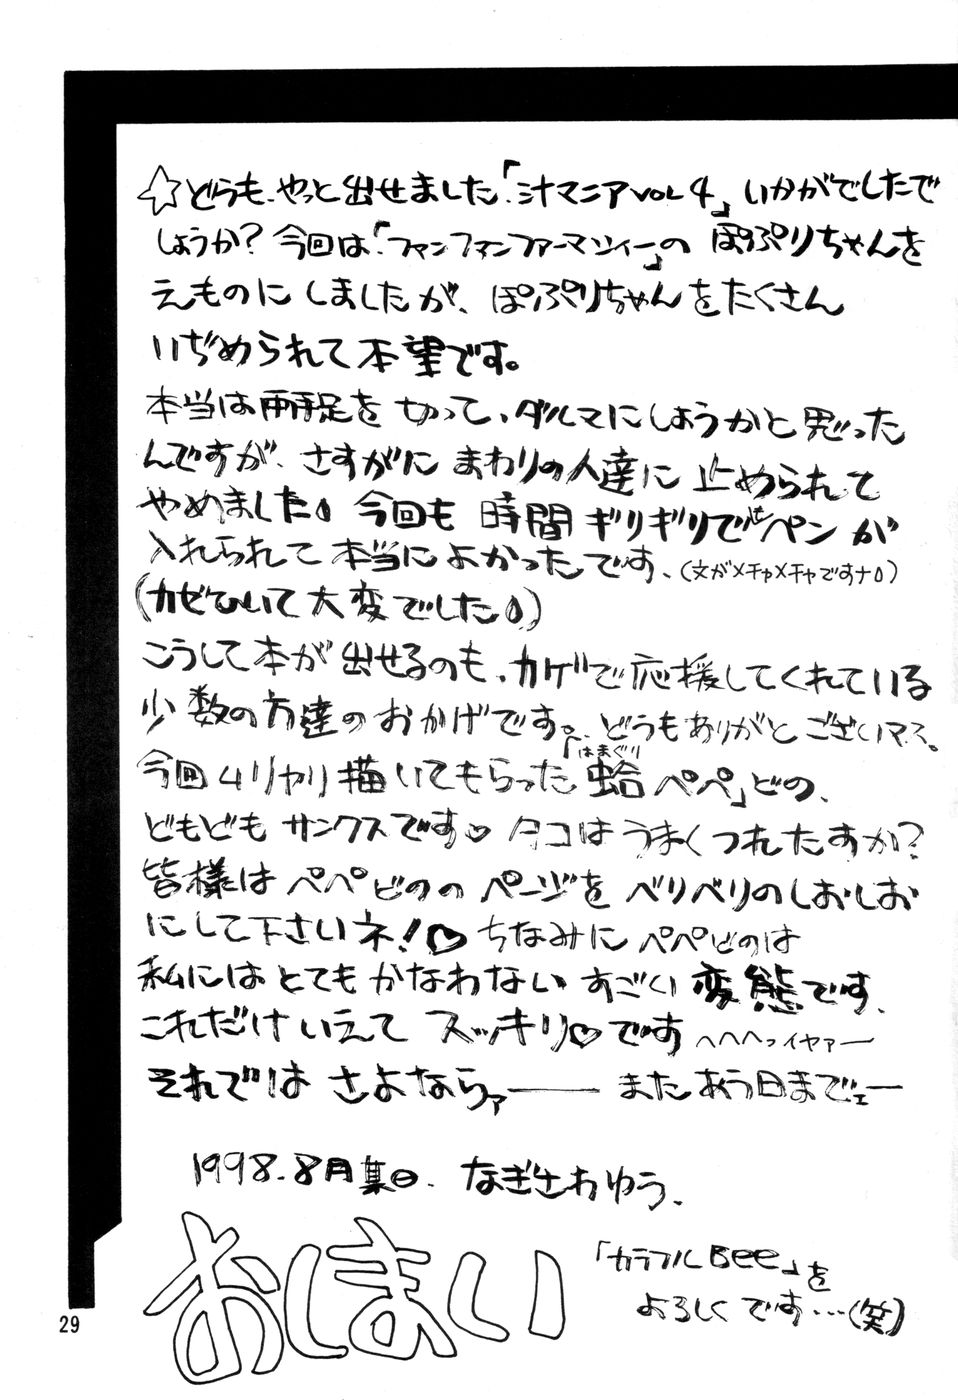 ☆どうも、やっと出せました「汁マニアvol4」いかがでしたで
しょうか?今回は「ファンファンファーマシィー」の ぽぷりちゃんを
えものに しましたが、ぽぷりちゃんをたくさん
いぢめられて本望です。
本当は両手足を切って、ダルマにしようかと思った
んですが、さすがに まわりの人達に 止められて
やめました 今回も 時間ギリギリでもペンが
入れられて本当によかったです、(文がメチャメチャですナ)
(カゼひいて大変でした)
こうして本が出せるのも、カゲで応援してくれている
少数の方達のおかげです。どうもありがとございマス。
今回ムリヤリ描いてもらった「蛤ペペ」どの、
はまぐり
どもどもサンクスです♡ タコはうまくつれたすか?
皆様はペペどののページをベリベリのしおしお
にして下さいネ!♡ ちなみにペペどのは
私にはとてもかなわない すごい変態です、
これだけいえてスッキリ♡です へへへっイヤァー
それでは さよならァー またあう日までェー
1998.8月某日、なぎさわゆう、
おしまい
「カラフルBee」を
よろしくです…(笑)
29